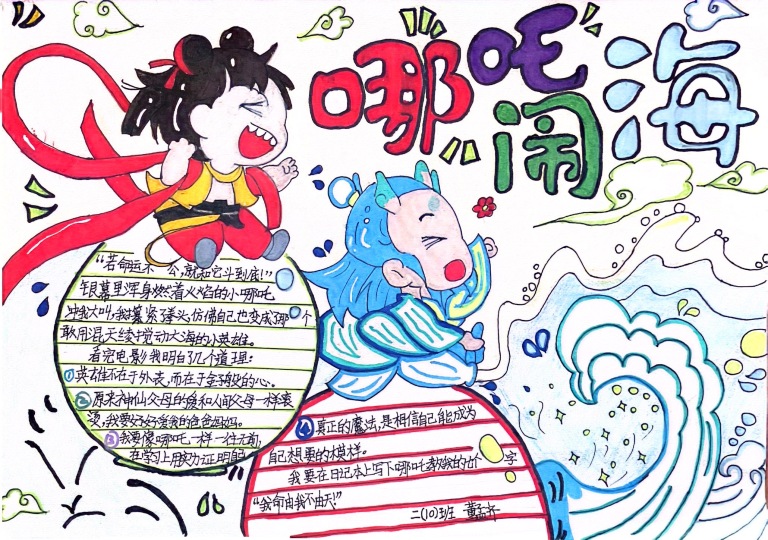 哪吒闹海
"若命运不公,就和它斗到底!"
银幕里浑身燃着火焰的小哪吒
冲我大叫,我攥紧了拳头,仿佛自己也变成了那个
敢用混天绫搅动大海的小英雄。
看完电影,我明白了几个道理:
①英雄不在于外表,而在于金子般的心。
②原来神仙父母的爱和人间父母一样滚
烫,我要好好爱我的爸爸妈妈。
③我要像哪吒一样一往无前,
在学习上用实力证明自己
④真正的魔法,是相信自己能成为
自己想要的模样。
我要在日记本上写下哪吒教我的六个字
"我命由我不由天!"
二(10)班 董